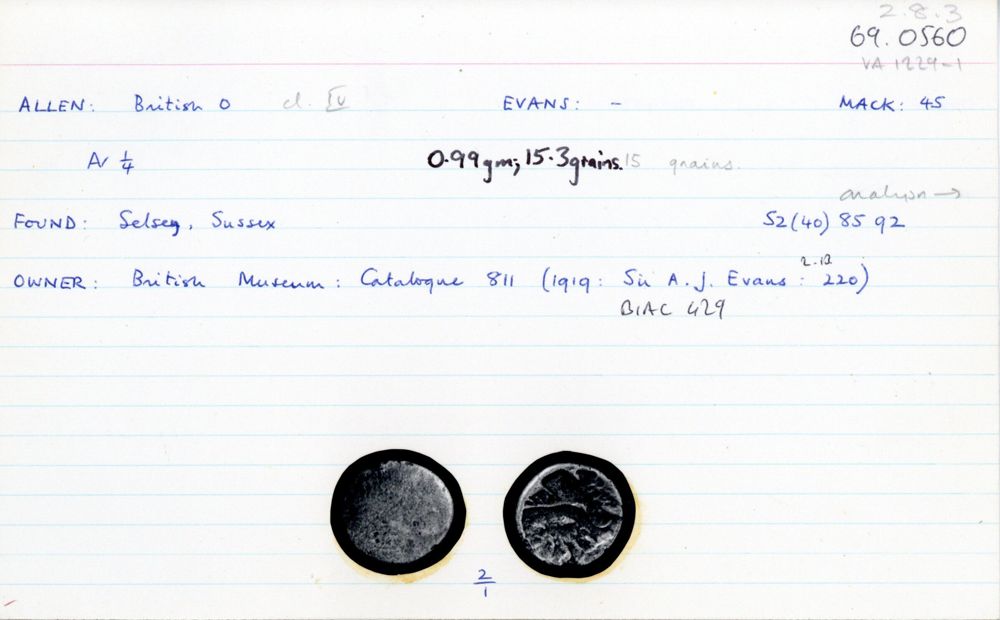 2.8.3
69.0560
VA 1229-1
ALLEN: British O cl. IV EVANS: - MACK: 45
AV 1/4 0.99gm; 15.3grains. 15 grains.
analysis →
FOUND: Selsey, Sussex SZ(40) 85 92
OWNER: British Museum: Catalogue 811 (1919: Sir A. J. Evans: 2.12 220)
BIAC 429
2/1